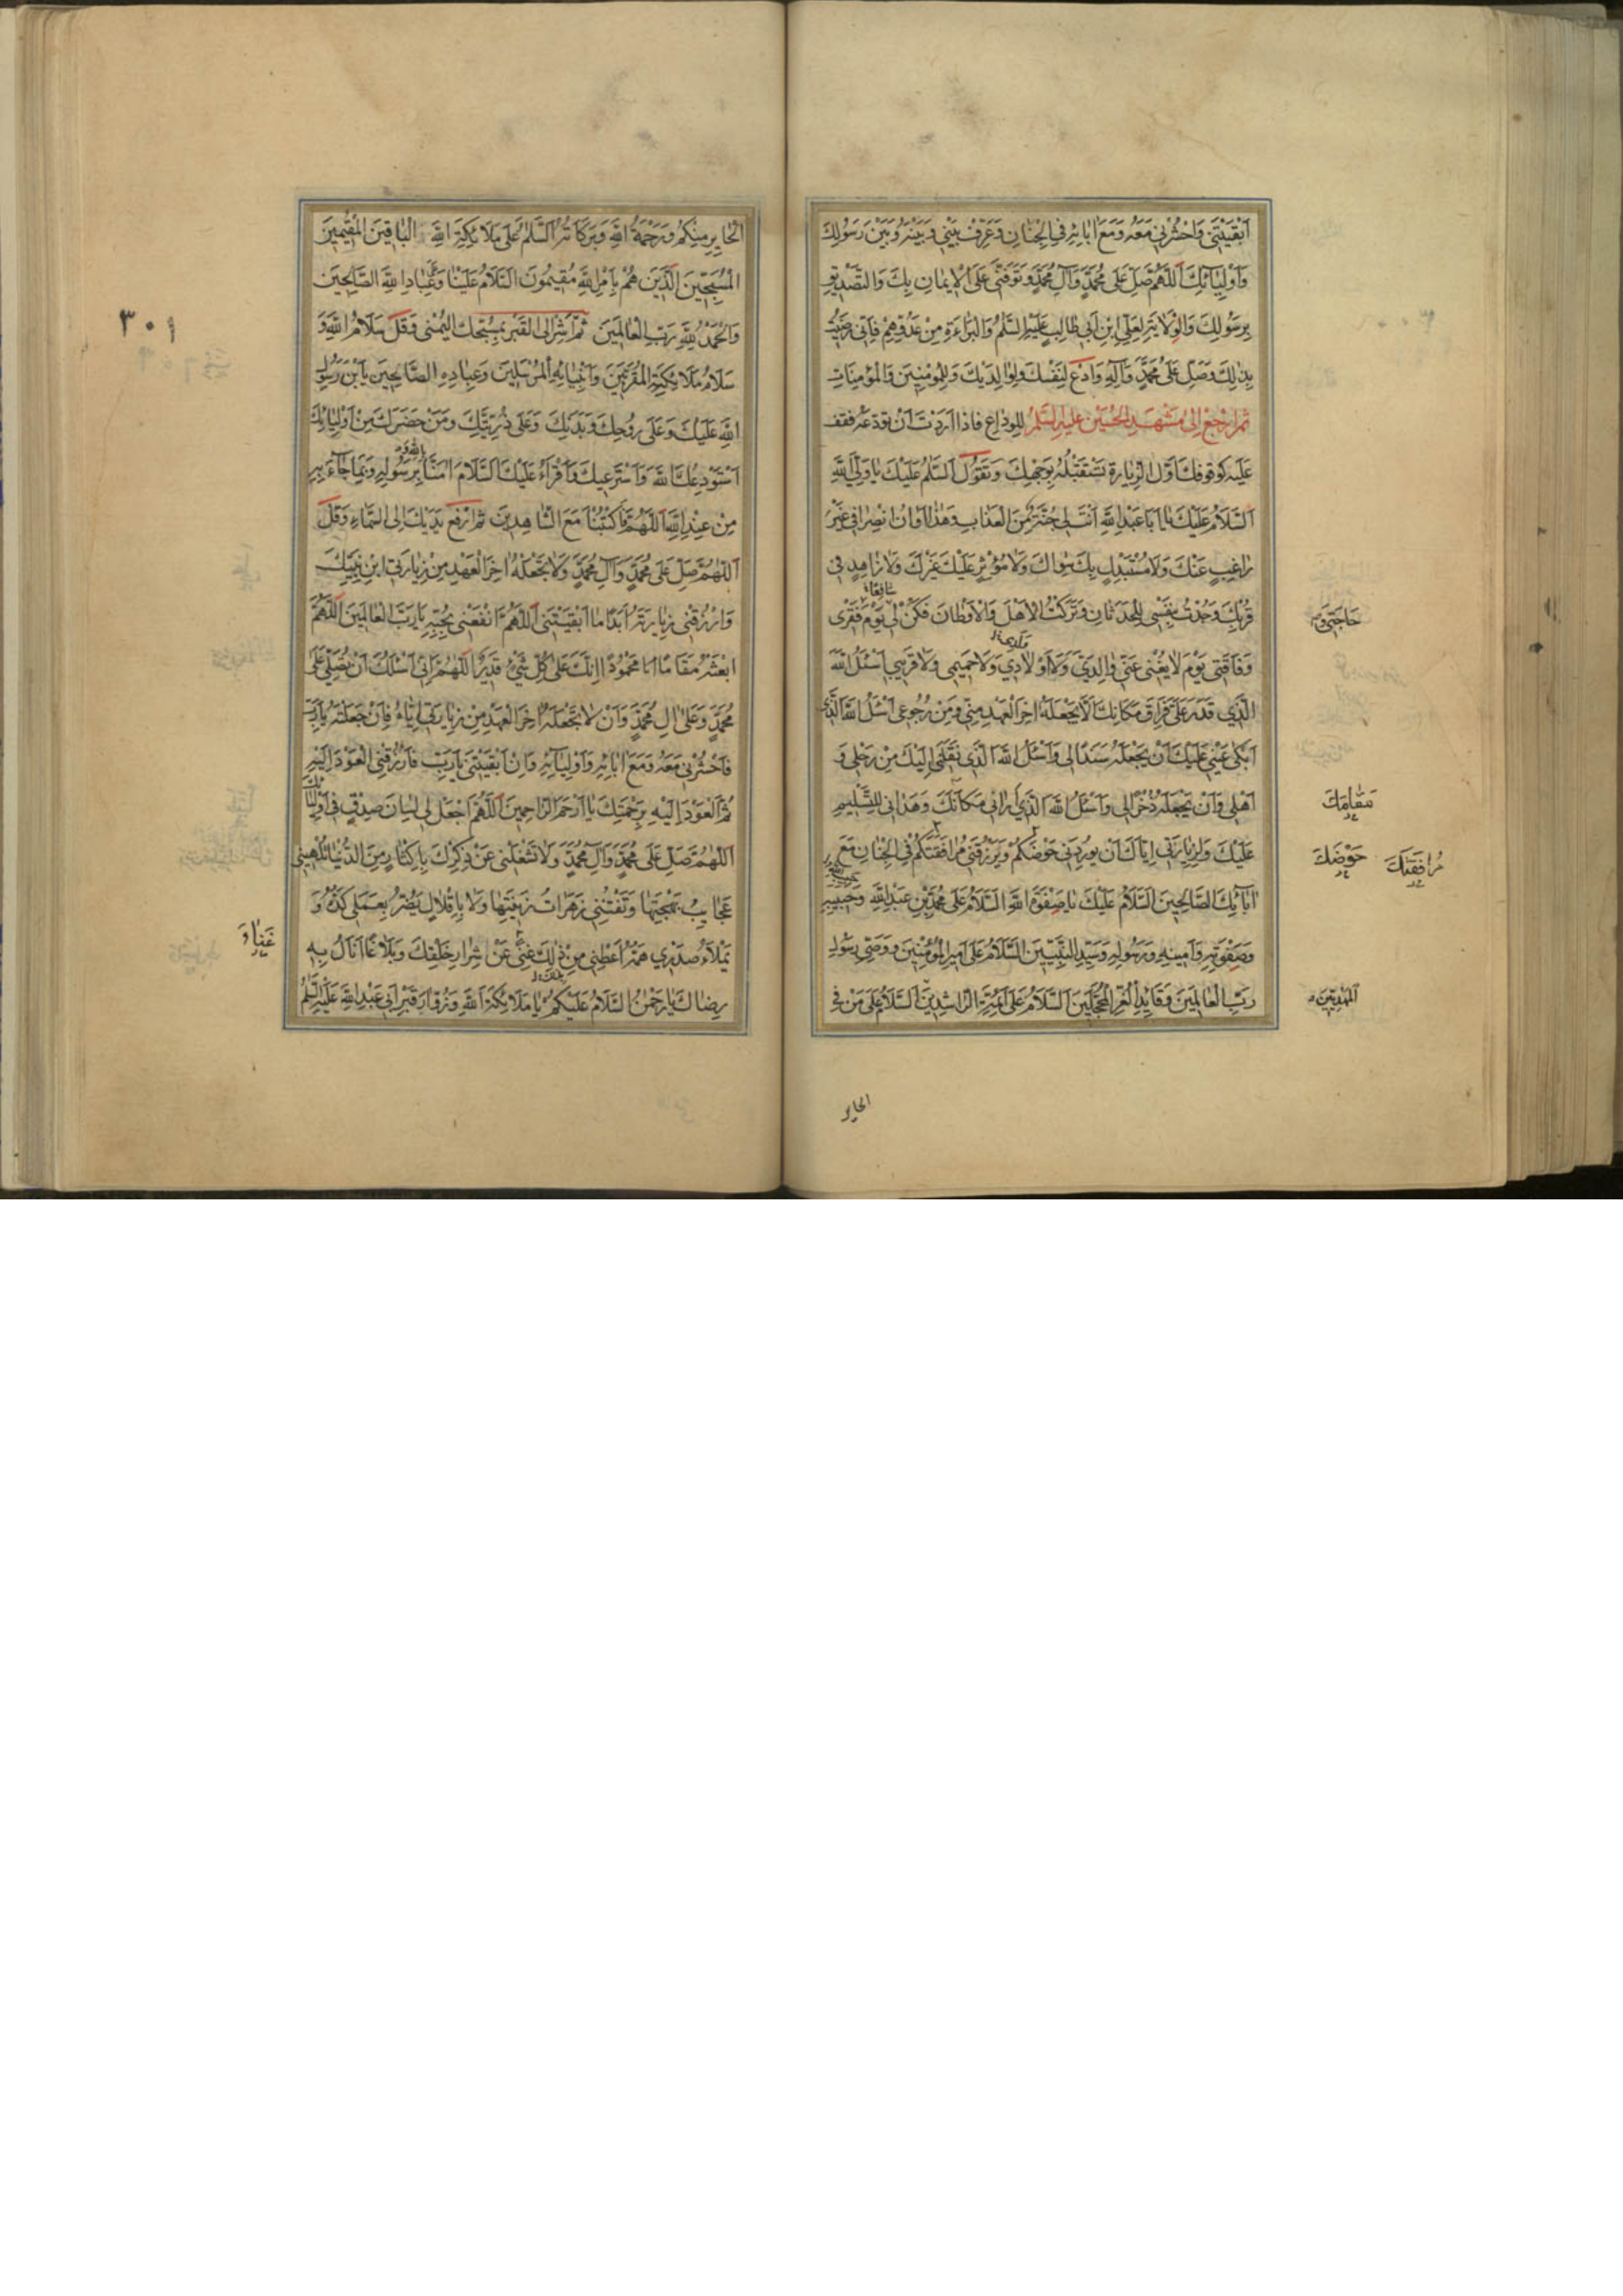 اَبْقَيْتَنِي وَاحْشُرْنِي مَعَهُ وَمَعَ اٰبَائِهِ فِي الْجِنَانِ وَعَرِّفْ بَيْنِي وَبَيْنَهُ وَبَيْنَ رَسُولِكَ
وَاَوْلِيَائِكَ اَللّٰهُمَّ صَلِّ عَلٰى مُحَمَّدٍ وَآلِ مُحَمَّدٍ وَتَوَفَّنِي عَلَى الْاِيمَانِ بِكَ وَالتَّصْدِيقِ
بِرَسُولِكَ وَالْوِلَايَةِ لِعَلِيِّ ابْنِ اَبِي طَالِبٍ عَلَيْهِ السَّلٰمُ وَالْبَرَاءَةِ مِنْ عَدُوِّهِمْ فَاِنِّي رَضِيتُ
بِذٰلِكَ وَصَلِّ عَلٰى مُحَمَّدٍ وَآلِهِ وَادْعُ لِنَفْسِكَ وَلِوَالِدَيْكَ وَلِلْمُؤْمِنِينَ وَالْمُؤْمِنَاتِ
ثُمَّ ارْجِعْ اِلٰى مَشْهَدِ الْحُسَيْنِ عَلَيْهِ السَّلٰمُ لِلْوِدَاعِ فَاِذَا اَرَدْتَ اَنْ تُوَدِّعَهُ فَقِفْ
عَلَيْهِ كَوُقُوفِكَ اَوَّلَ الزِّيَارَةِ تَسْتَقْبِلُهُ بِوَجْهِكَ وَتَقُولُ اَلسَّلٰمُ عَلَيْكَ يَا وَلِيَّ اللّٰهِ
اَلسَّلَامُ عَلَيْكَ يَا اَبَا عَبْدِ اللّٰهِ اَنْتَ لِي جُنَّةٌ مِنَ الْعَذَابِ وَهٰذَا اَوَانُ انْصِرَافِي غَيْرَ
رَاغِبٍ عَنْكَ وَلَا مُسْتَبْدِلٍ بِكَ سِوَاكَ وَلَا مُؤْثِرٍ عَلَيْكَ غَيْرَكَ وَلَا زَاهِدٍ فِي
شَافِعًا
قُرْبِكَ وَجُدْتُ بِنَفْسِي لِلْحَدَثَانِ وَتَرَكْتُ الْاَهْلَ وَالْاَوْطَانَ فَكُنْ لِي يَوْمَ فَقْرِي
حَاجَتِي وَ
وَفَاقَتِي يَوْمَ لَا يُغْنِي عَنِّي وَالِدَيَّ وَلَا اَوْلَادِي وَلَا حَمِيمِي وَلَا قَرِيبِي اَسْئَلُ اللّٰهَ
الَّذِي قَدَّرَ عَلَيَّ فِرَاقَ مَكَانِكَ اَلَّا يَجْعَلَهُ اٰخِرَ الْعَهْدِ مِنِّي وَمِنْ رُجُوعِي اَسْئَلُ اللّٰهَ الَّذِي
اَبْكٰى عَيْنِي عَلَيْكَ اَنْ يَجْعَلَهُ سَنَدًا لِي وَاَسْئَلُ اللّٰهَ الَّذِي نَقَلَنِي اِلَيْكَ مِنْ رَحْلِي وَ
اَهْلِي وَاَنْ يَجْعَلَهُ ذُخْرًا لِي وَاَسْئَلُ اللّٰهَ الَّذِي اَرَانِي مَكَانَكَ وَهَدَانِي لِلتَّسْلِيمِ
مَقَامَكَ
عَلَيْكَ وَلِزِيَارَتِي اِيَّاكَ اَنْ يُورِدَنِي حَوْضَكُمْ وَيَرْزُقَنِي مُرَافَقَتَكُمْ فِي الْجِنَانِ مَعَ
حَوْضَكَ مُرَافَقَتَكَ
اٰبَائِكَ الصَّالِحِينَ اَلسَّلَامُ عَلَيْكَ يَا صَفْوَةَ اللّٰهِ اَلسَّلَامُ عَلٰى مُحَمَّدِ بْنِ عَبْدِ اللّٰهِ وَحَبِيبِهِ
وَصَفْوَتِهِ وَاَمِينِهِ وَرَسُولِهِ وَسَيِّدِ النَّبِيِّينَ اَلسَّلَامُ عَلٰى اَمِيرِ الْمُؤْمِنِينَ وَوَصِيِّ رَسُولِ
رَبِّ الْعَالَمِينَ وَقَائِدِ الْغُرِّ الْمُحَجَّلِينَ اَلسَّلَامُ عَلَى الْاَئِمَّةِ الرَّاشِدِينَ اَلسَّلَامُ عَلٰى مَنْ فِي
الْمَهْدِيِّينَ
الحاير
٣٠١
الْحَايِرِ مِنْكُمْ وَرَحْمَةُ اللّٰهِ وَبَرَكَاتُهُ اَلسَّلٰمُ عَلٰى مَلَائِكَةِ اللّٰهِ الْبَاقِينَ الْمُقِيمِينَ
الْمُسَبِّحِينَ الَّذِينَ هُمْ بِاَمْرِ اللّٰهِ مُقِيمُونَ اَلسَّلَامُ عَلَيْنَا وَعَلٰى عِبَادِ اللّٰهِ الصَّالِحِينَ
وَالْحَمْدُ لِلّٰهِ رَبِّ الْعَالَمِينَ ثُمَّ اَشِرْ اِلَى الْقَبْرِ بِمُسَبِّحَتِكَ الْيُمْنٰى وَقُلْ سَلَامُ اللّٰهِ وَ
سَلَامُ مَلَائِكَتِهِ الْمُقَرَّبِينَ وَاَنْبِيَائِهِ الْمُرْسَلِينَ وَعِبَادِهِ الصَّالِحِينَ يَا بْنَ رَسُولِ
اللّٰهِ عَلَيْكَ وَعَلٰى رُوحِكَ وَبَدَنِكَ وَعَلٰى ذُرِّيَّتِكَ وَمَنْ حَضَرَكَ مِنْ اَوْلِيَائِكَ
بِاللّٰهِ وَ
اَسْتَوْدِعُكَ اللّٰهَ وَاَسْتَرْعِيكَ وَاَقْرَأُ عَلَيْكَ السَّلَامَ اٰمَنَّا بِرَسُولِهِ وَبِمَا جَاءَ بِهِ
مِنْ عِنْدِ اللّٰهِ اَللّٰهُمَّ فَاكْتُبْنَا مَعَ الشَّاهِدِينَ ثُمَّ ارْفَعْ يَدَيْكَ اِلَى السَّمَاءِ وَقُلْ
اَللّٰهُمَّ صَلِّ عَلٰى مُحَمَّدٍ وَآلِ مُحَمَّدٍ وَلَا تَجْعَلْهُ اٰخِرَ الْعَهْدِ مِنْ زِيَارَتِي ابْنَ نَبِيِّكَ
وَارْزُقْنِي زِيَارَتَهُ اَبَدًا مَا اَبْقَيْتَنِي اَللّٰهُمَّ انْفَعْنِي بِحُبِّهِ يَا رَبَّ الْعَالَمِينَ اَللّٰهُمَّ
ابْعَثْهُ مَقَامًا مَحْمُودًا اِنَّكَ عَلٰى كُلِّ شَيْءٍ قَدِيرٌ اَللّٰهُمَّ اِنِّي اَسْئَلُكَ اَنْ تُصَلِّيَ عَلٰى
مُحَمَّدٍ وَعَلٰى اٰلِ مُحَمَّدٍ وَاَنْ لَا تَجْعَلَهُ اٰخِرَ الْعَهْدِ مِنْ زِيَارَتِي اِيَّاهُ فَاِنْ جَعَلْتَهُ يَا رَبِّ
فَاحْشُرْنِي مَعَهُ وَمَعَ اٰبَائِهِ وَاَوْلِيَائِهِ وَاِنْ اَبْقَيْتَنِي يَا رَبِّ فَارْزُقْنِي الْعَوْدَ اِلَيْهِ
ثُمَّ الْعَوْدَ اِلَيْهِ بِرَحْمَتِكَ يَا اَرْحَمَ الرَّاحِمِينَ اَللّٰهُمَّ اجْعَلْ لِي لِسَانَ صِدْقٍ فِي اَوْلِيَائِكَ
اَللّٰهُمَّ صَلِّ عَلٰى مُحَمَّدٍ وَآلِ مُحَمَّدٍ وَلَا تَشْغَلْنِي عَنْ ذِكْرِكَ بِاِكْثَارٍ مِنَ الدُّنْيَا تُلْهِينِي
عَجَائِبُ بَهْجَتِهَا وَتَفْتِنُنِي زَهَرَاتُ زِينَتِهَا وَلَا بِاِقْلَالٍ يَضُرُّ بِعَمَلِي كَدُّهُ وَ
يَمْلَاُ صَدْرِي هَمُّهُ اَعْطِنِي مِنْ ذٰلِكَ غِنًى عَنْ شِرَارِ خَلْقِكَ وَبَلَاغًا اَنَالُ بِهِ
غَنَاءً
رِضَاكَ يَا رَحْمٰنُ اَلسَّلَامُ عَلَيْكُمْ يَا مَلَائِكَةَ اللّٰهِ وَزُوَّارَ قَبْرِ اَبِي عَبْدِ اللّٰهِ عَلَيْهِ السَّلٰمُ